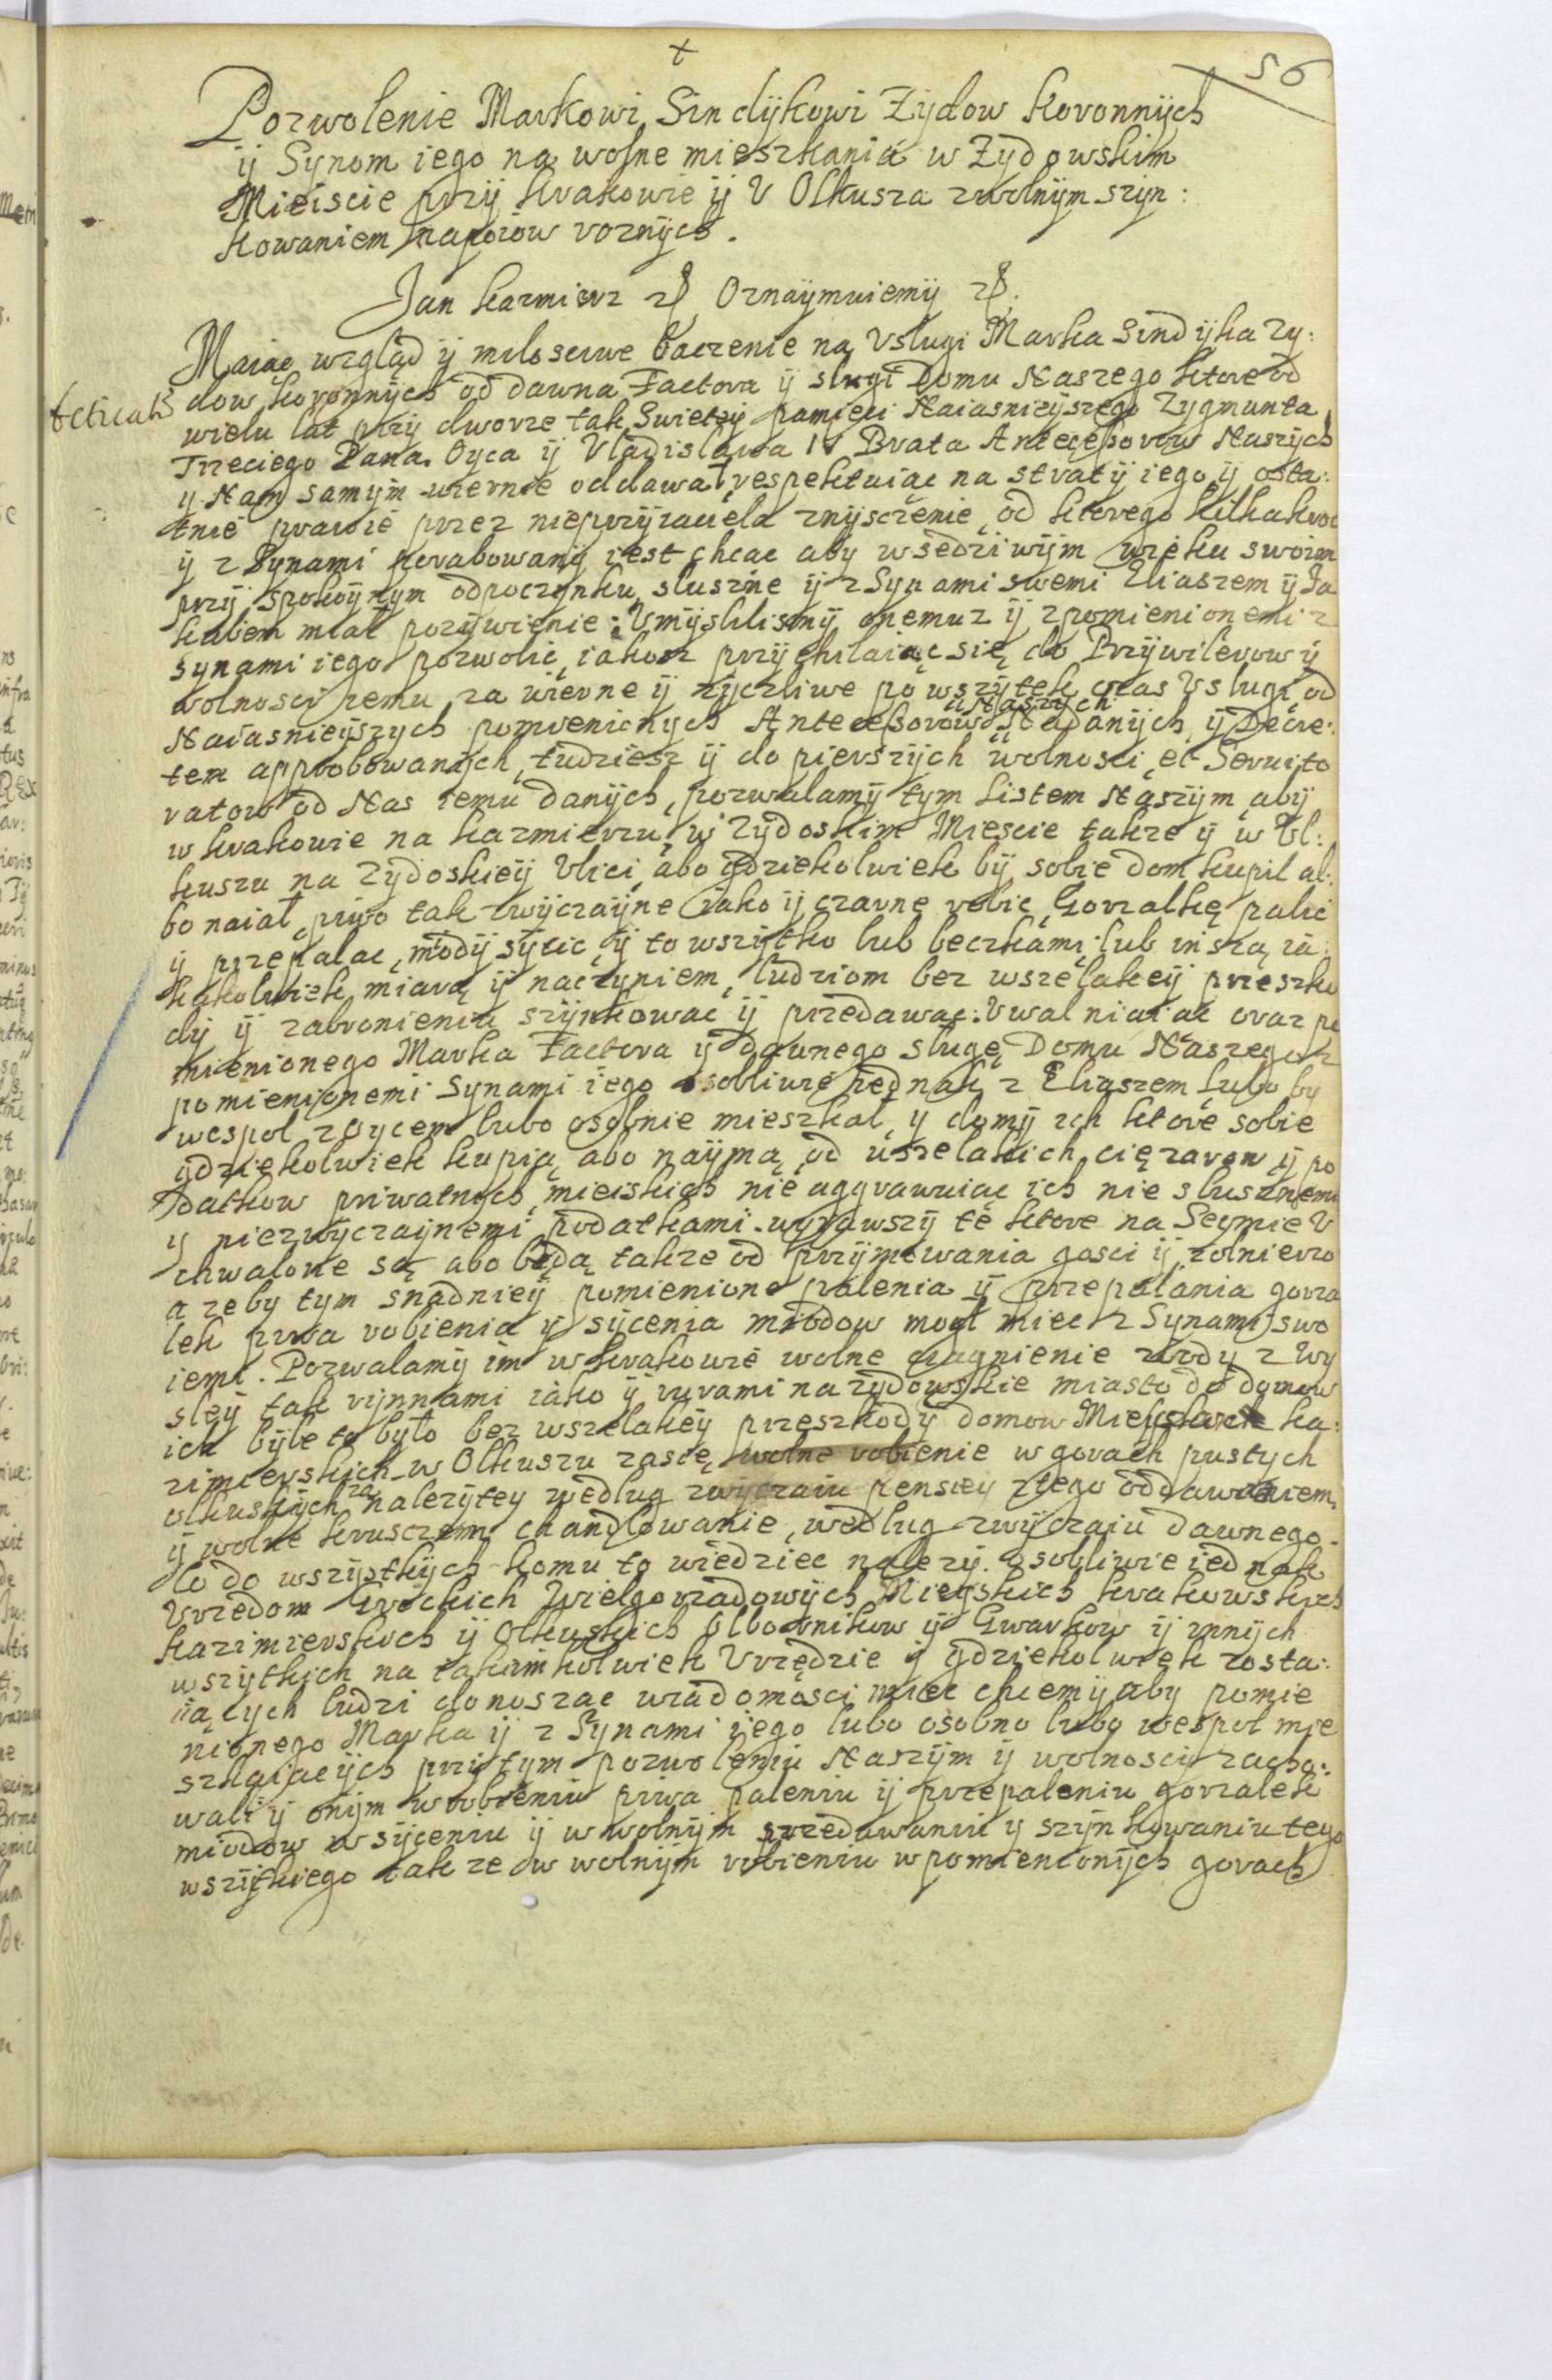 +
56
Pozwolenie Markowi Sindÿkowi Zÿdow koronnÿch
ÿ Synom iego na wolne mieszkania w Zydowskim
Mieiscie przÿ krakowie ÿ V Olkusza zwolnÿm szÿn:
kowaniem napoiow roznÿch.
Jan kazmierz Oznaÿmuiemÿ
Maiąc wzgląd ÿ milosciwe baczenie na Vslugi Marka Sindÿka Zy:
dow koronnÿch od dawna Factora ÿ slugi Domu Naszego ktore od
wielu lat przÿ dworze tak Swieteÿ pamięci Naiasnieÿszego Zygmunta
Trzeciego Pana Oyca ÿ Vladislawa IV Brata Antecessorow Naszÿch
y Nam samÿm wiernie oddawał, respektuiąc na stratÿ iego ÿ osta:
tnie prawie przez nieprzÿiaciela znÿsczenie, od ktorego kilkakroc
ÿ z Synami porabowanÿ iest chcąc aby wsedziwÿm wieku swoim
przÿ spokoÿnym odpoczÿnku sluszne ÿ z Synami swemi Eliaszem ÿ Ja
kubem miał pozÿwienie: Vmÿslilismÿ onemuz ÿ zpomienionemi z
synami iego pozwolic, iakosz przÿchilaiąc się do Przÿwilerow ÿ
wolnosci iemu za wierne ÿ zÿczliwe po wszÿtek czas Vslugi od
Naiasnieÿszych pomienionych Antecessorow Naszÿch Nadanÿch, ÿ Decre:
tem approbowanÿch, tudziesz ÿ do pierszÿch wolnosci et Servito
ratow od Nas iemu danÿch, pozwalamÿ tym Listem Naszÿm, abÿ
w krakowie na kazmierzu, w Zydoskim Miescie takze ÿ w Ol:
kuszu na Zÿdoskieÿ Vlici, abo gdziekolwiek bÿ sobie dom kupil al:
bo naiał, piwo tak zwÿczaÿne iako ÿ czarne robic, Gorzalkę palic
ÿ przepalac, miodÿ sÿcic, ÿ to wszÿtko lub beczkami, lub inszą ia:
kakolwiek miarą ÿ naczÿniem, ludziom bez wszelakeÿ przeszko
dÿ ÿ zabronieniu szÿnkowac ÿ przedawac: Vwalniaiąc oraz po
mienionego Marka Factora ÿ dawnego slugę Domu Naszego z
pomienionemi Synami iego osobliwie iednak z Eliaszem lubo by
wespol z Oycem lubo osobnie mieszkal, y domÿ ich ktore sobie
gdziekolwiek kupią abo naÿmą od wszelakich ciezarow ÿ po
datkow priwatnych mieiskich nie aggrawuiąc ich nie slusznemi
y niezwÿczaÿnemi podatkami wyiąwszÿ te ktore na Seÿmie V
chwalone są abo będą takze od przÿimowania gosci ÿ zolnierzo
a zeby tym snadnieÿ pomienione palenia ÿ przepalania gorza
lek piwa robienia ÿ sÿcenia miodow mogl miec z Synami swo
iemi. Pozwalamÿ im w krakowie wolne ciągnienie wody z Wy
sleÿ tak rÿnnami iako ÿ rurami na zÿdowskie miasto do domow
ich bÿle to było bez wszelakeÿ przeszkodÿ domow Mieÿskich ka:
zimierskich w Olkuszu zasię wolne robienie w gorach pustych
olkuskich za nalezÿtey według zwÿczaiu pensieÿ ztego oddawaniem,
ÿ wolne kruszczem chandlowanie, według zwÿczaiu dawnego.
Co do wszÿstkÿch komu to wiedziec nalezÿ osobliwie iednak
Vrzędom Grockich Wielgorządowÿch Mieÿskich krakowskich
kazimierskich ÿ Olkuskich Olbornikow ÿ Gwarkow ÿ innÿch
wszÿtkich na iakimkolwiek Vrzędzie ÿ gdziekolwiek zosta:
iących ludzi donosząc wiadomosci miec chcemÿ aby pomie
nionego Marka ÿ z Synami iego lubo osobno lubo wespol mie
szkaiącÿch przÿ tym pozwoleniu Naszÿm ÿ wolnosci zacho:
wali ÿ onÿm w robieniu piwa paleniu ÿ przepaleniu gorzalek
miodow w sÿceniu ÿ w wolnÿm przedawaniu y szÿnkowaniu tego
wszÿtkiego takze w wolnÿm robieniu w pomienionÿch gorach